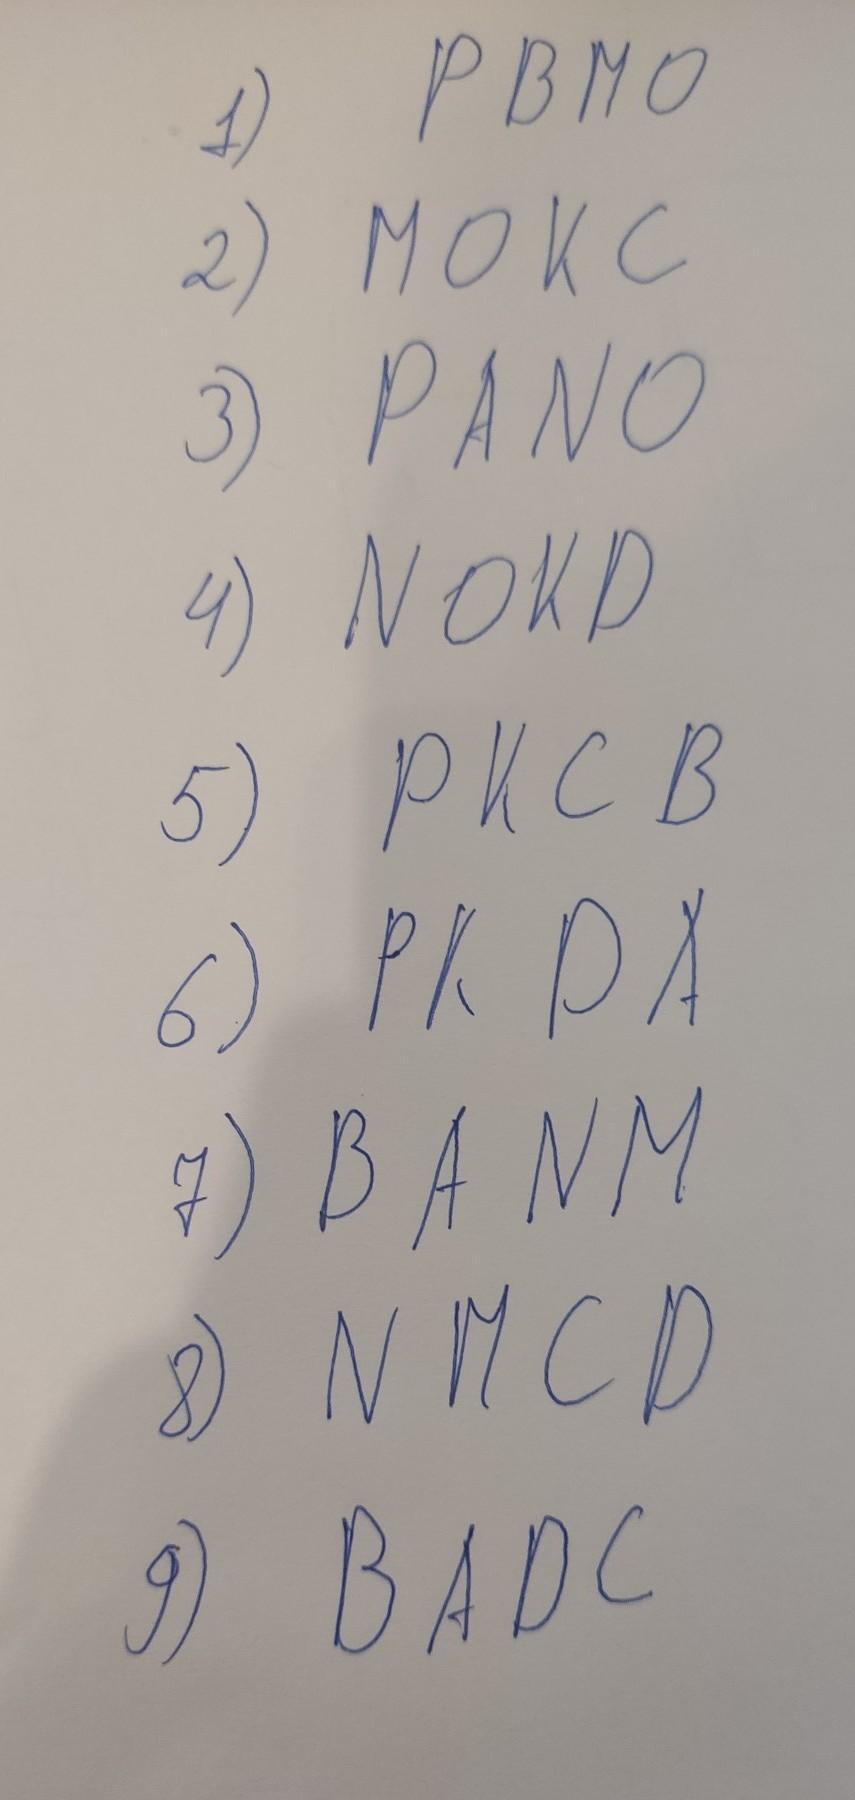 1) PBMO
2) MOKC
3) PANO
4) NOKD
5) PKCB
6) PKDA
7) BANM
8) NMCD
9) BADC